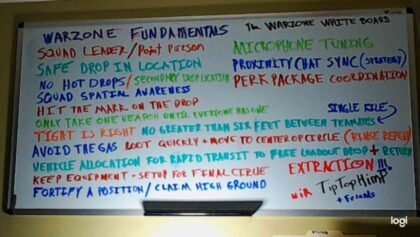 WARZONE FUNDAMENTALS
The WARZONE WHITE BOARD
SQUAD LEADER/Point Person
SAFE DROP IN LOCATION
NO HOT DROPS/SECONDARY DROP LOCATION
SQUAD SPATIAL AWARENESS
MICROPHONE TUNING
PROXIMITY CHAT SYNC (STRATEGY)
PERK PACKAGE COORDINATION
HIT THE MARK ON THE DROP
ONLY TAKE ONE WEAPON UNTIL EVERYONE HAS ONE
SINGLE FILE
TIGHT IS RIGHT NO GREATER THAN SIX FEET BETWEEN TEAMMATES
AVOID THE GAS LOOT QUICKLY + MOVE TO CENTER OF CIRCLE (RINSE REPEAT)
VEHICLE ALLOCATION FOR RAPID TRANSIT TO FREE LOADOUT DROP + RETURN
KEEP EQUIPMENT + SETUP FOR FINAL CIRCLE
EXTRACTION!!!
FORTIFY A POSITION/CLAIM HIGH GROUND
TipTopHimP
+ Friends
logi